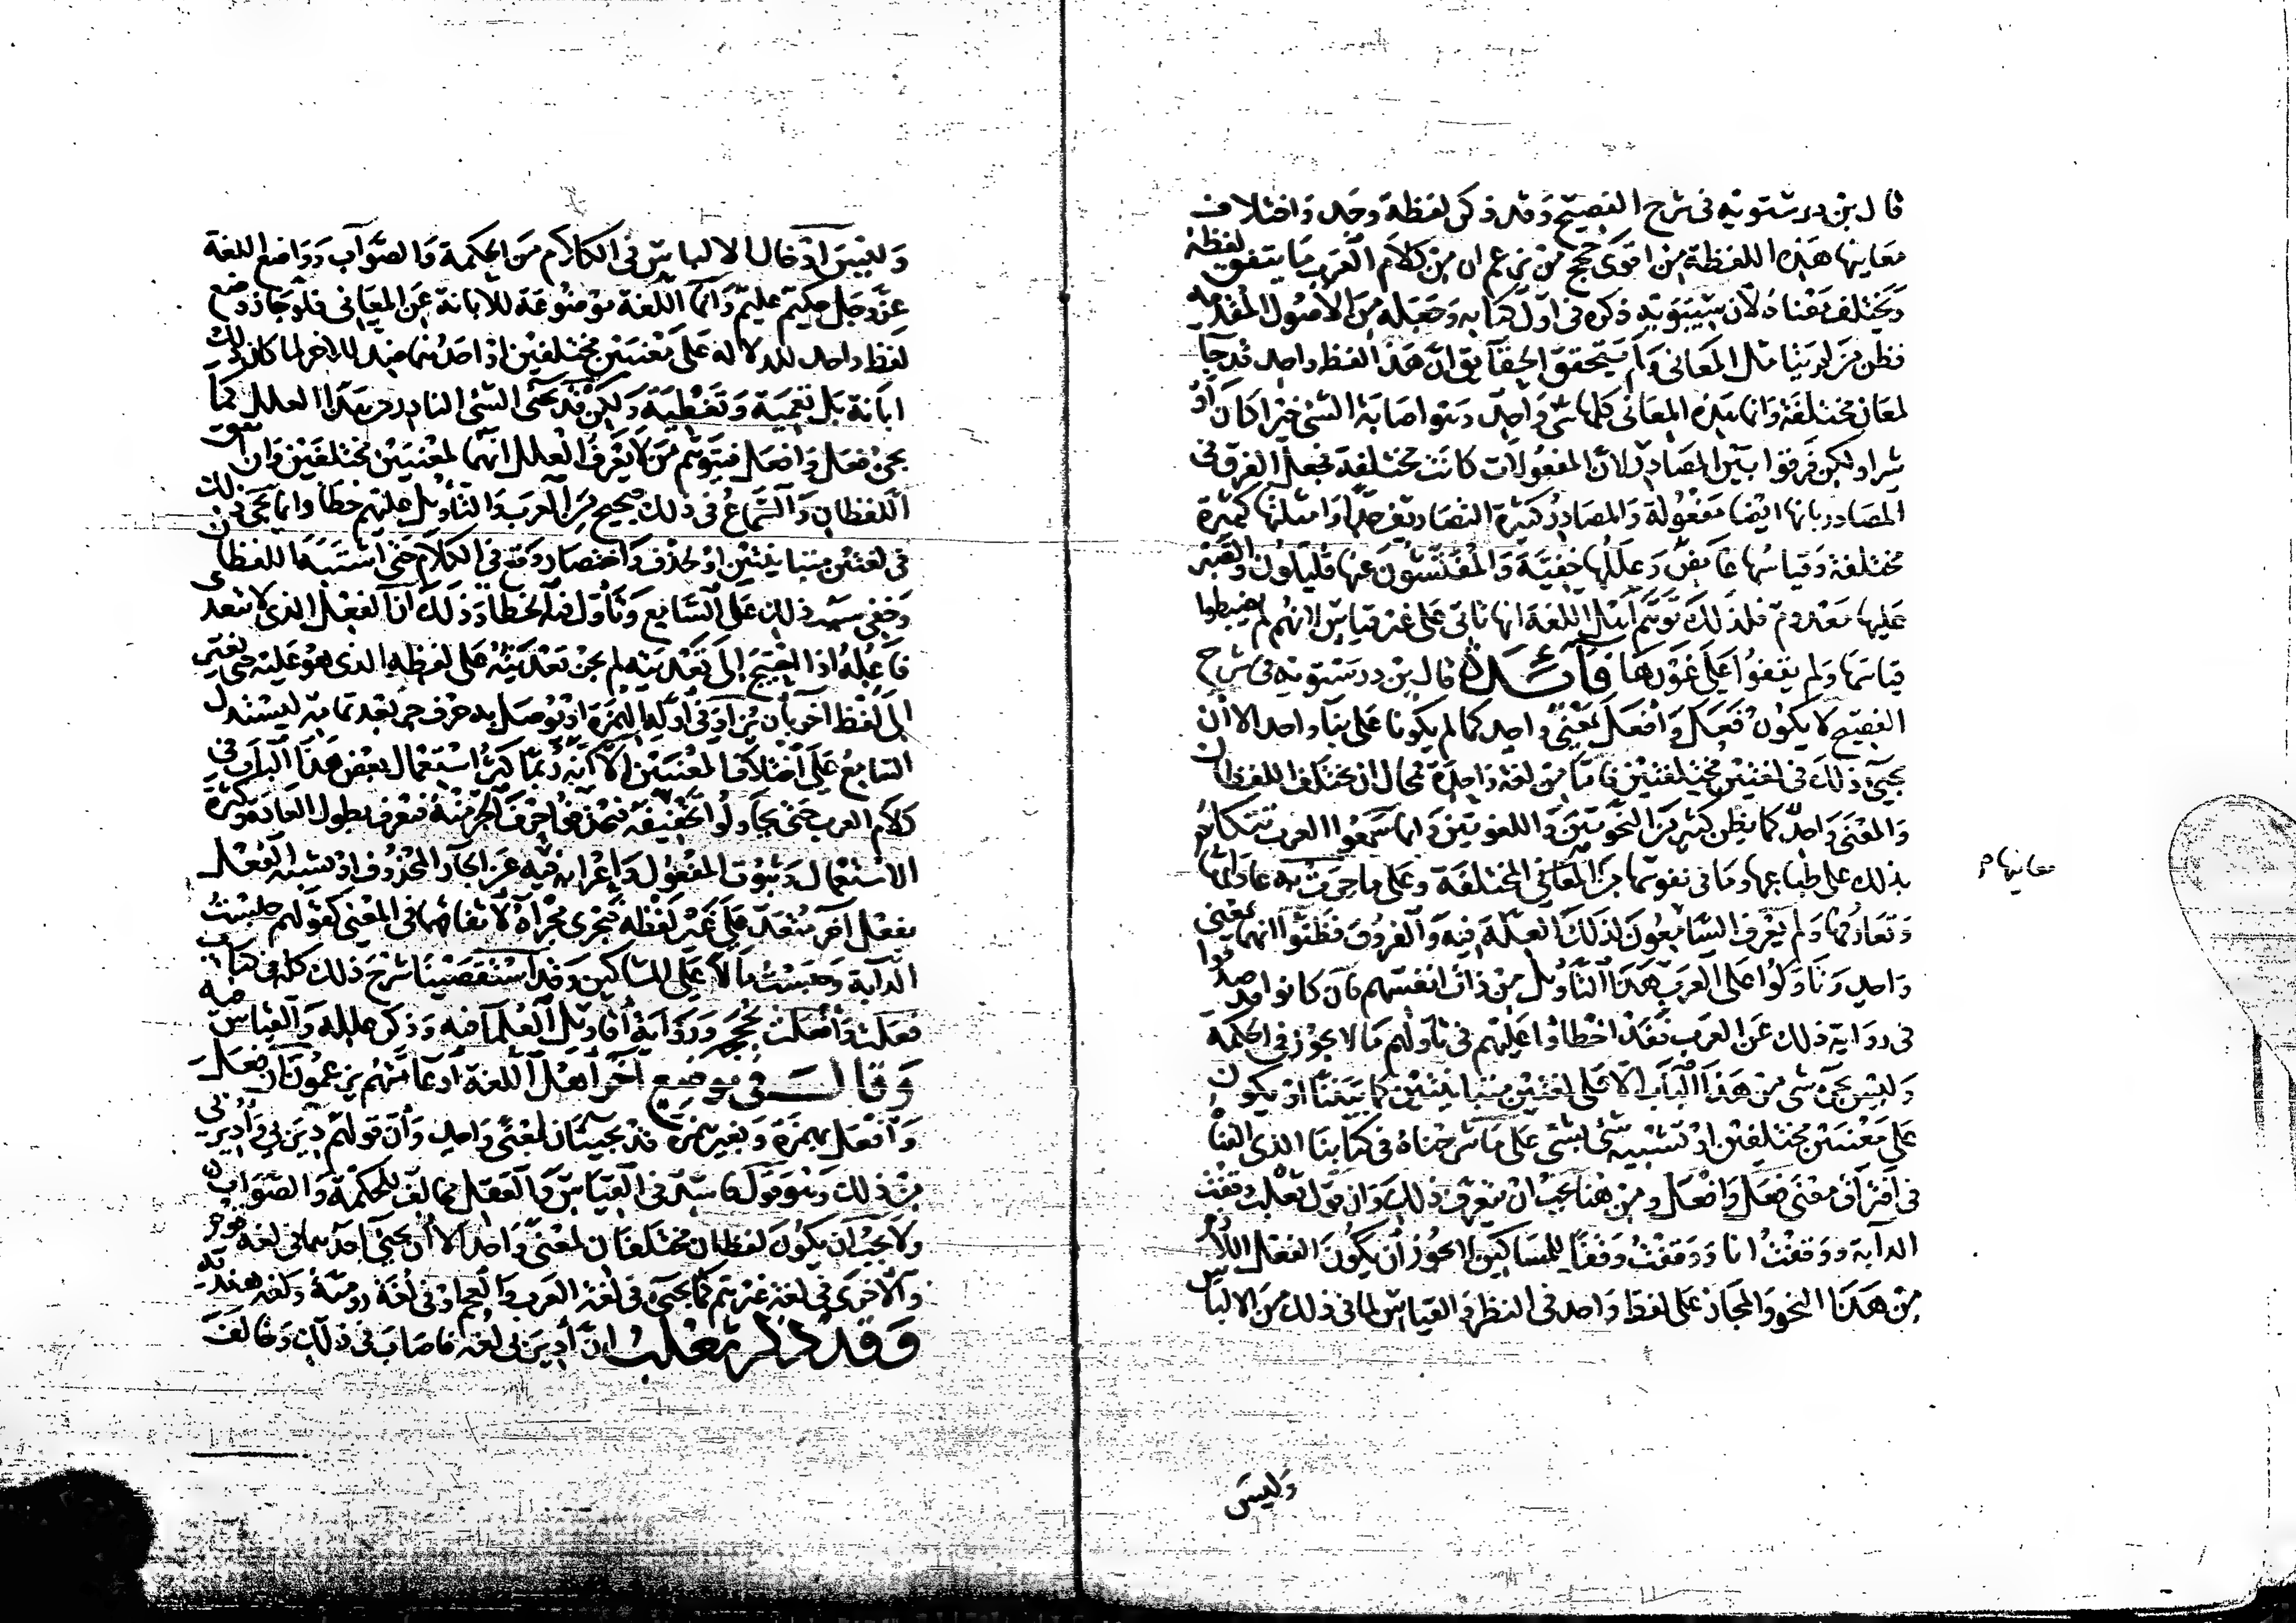 قال بن درستويه في شرح الفصيح وقد ذكر لفظة وجد واختلاف
معانيها هذه اللفظة من اقوى حجج من يزعم ان من كلام العرب ما يتفق لفظه
ويختلف معناه لان سيبويه ذكره في اول كتابه وجعله من الاصول المقدمة
فظن من لم يتامل المعاني ولم يتحقق الحقايق ان هذا لفظ واحد قد جا
لمعان مختلفة وانما هذه المعاني كلها شي واحد وهو اصابة الشي خيرا كان او
شرا ولكن فرقوا بين المصادر لان المفعولات كانت مختلفة فجعل الفرق في
المصادر بانها ايضا مفعولة والمصادر كثيرة التصاريف جدا وامثلتها كثيرة
مختلفة وقياسها غامض وعللها خفية والمفتشون عنها قليلون والصبر
عليها معدوم فلذلك توهم اهل اللغة انها تاتي على غير قياس لانهم لم يضبطوا
قياسها ولم يقفوا على غورها فائدة قال بن درستويه في شرح
الفصيح لا يكون فعل وافعل بمعنى واحد كما لم يكونا على بناء واحد الا ان
يجيء ذلك في لغتين مختلفتين فاما من لغة واحدة فمحال ان يختلف اللفظان
والمعنى واحد كما يظن كثير من النحويين واللغويين وانما سمعوا العرب تتكلم
بذلك على طباعها وما في نفوسها من المعاني المختلفة وعلى ما جرت به عاداتها
وتعارفها ولم يعرف السامعون لذلك العلة فيه والفروق فظنوا انهما بمعنى
واحد وتاولوا على العرب هذا التاويل من ذات انفسهم فان كانوا قد صدقوا
في رواية ذلك عن العرب فقد اخطاوا عليهم في تاولهم ما لا يجوز في الحكمة
وليس يجيء شي من هذا الباب الا على لغتين متباينتين كما بيننا او يكون
على معنيين مختلفين او تشبيه شي بشي على ما شرحناه في كتابنا الذي الفناه
في افتراق معنى فعل وافعل ومن هنا يجب ان يتعرف ذلك وان قول ثعلب وقفت
الدابة ووقفت انا ووقفت وقفا للمساكين لا يجوز ان يكون الفعل اللازم
من هذا النحو والمجاوز على لفظ واحد في النظر والقياس لما في ذلك من الالباس
وليس
معانيها م
وليس ادخال الالباس في الكلام من الحكمة والصواب وواضع اللغة
عز وجل حكيم عليم وانما اللغة موضوعة للابانة عن المعاني فلو جاز وضع
لفظ واحد للدلالة على معنيين مختلفين او احدهما ضد للاخر لما كان ذلك
ابانة بل تعمية وتغطية ولكن قد يجئ الشي النادر من هذا العلل كما
يجئ فعل وافعل فيتوهم من لا يعرف العلل انهما لمعنيين مختلفين وان اتفق
اللفظان والسماع في ذلك صحيح من العرب والتاويل عليهم خطا وانما يجئ ذلك
في لغتين متباينتين او لحذف واختصار وقع في الكلام حتى اشتبه اللفظان
وخفي سبب ذلك على السامع وتاول فيه الخطا وذلك ان الفعل الذي لا يتعدى
فاعله اذا احتيج الى تعديته لم يجز تعديته على لفظه الذي هو عليه حتى يغير
الى لفظ اخر بان يزاد في اوله الهمزة او يوصل به حرف جر بعد تمامه ليستدل
السامع على اختلاف المعنيين الا انه ربما كثر استعمال بعض هذا الباب في
كلام العرب حتى يحاولوا تخفيفه فيحذفوا حرف الجر منه فيعرف بطول العادة وكثرة
الاستعمال وثبوت المفعول واعرابه فيه عن الجار المحذوف او يشبه الفعل
بفعل اخر متعد على غير لفظه فيجري مجراه لاتفاقهما في المعنى كقولهم حبست
الدابة وحبست مالا على المساكين وقد استقصينا شرح ذلك كله في كتاب
فعلت وافعلت بحججه ورواية اقاويل العلما فيه وذكر علله والقياس فيه
وقال في موضع آخر اهل اللغة او عامتهم يزعمون ان فعل
وافعل بهمزة وبغير همزة قد يجيئان لمعنى واحد وان قولهم دير بي وادير بي
من ذلك وهو قول فاسد في القياس والعقل مخالف للحكمة والصواب
ولا يجب ان يكون لفظان مختلفان لمعنى واحد الا ان يجئ احدهما في لغة قوم
والاخرى في لغة غيرهم كما يجئ في لغة العرب والعجم او في لغة رومية ولغة هندية
وقد ذكر ثعلب ان ادير بي لغة فاصاب في ذلك وخالف